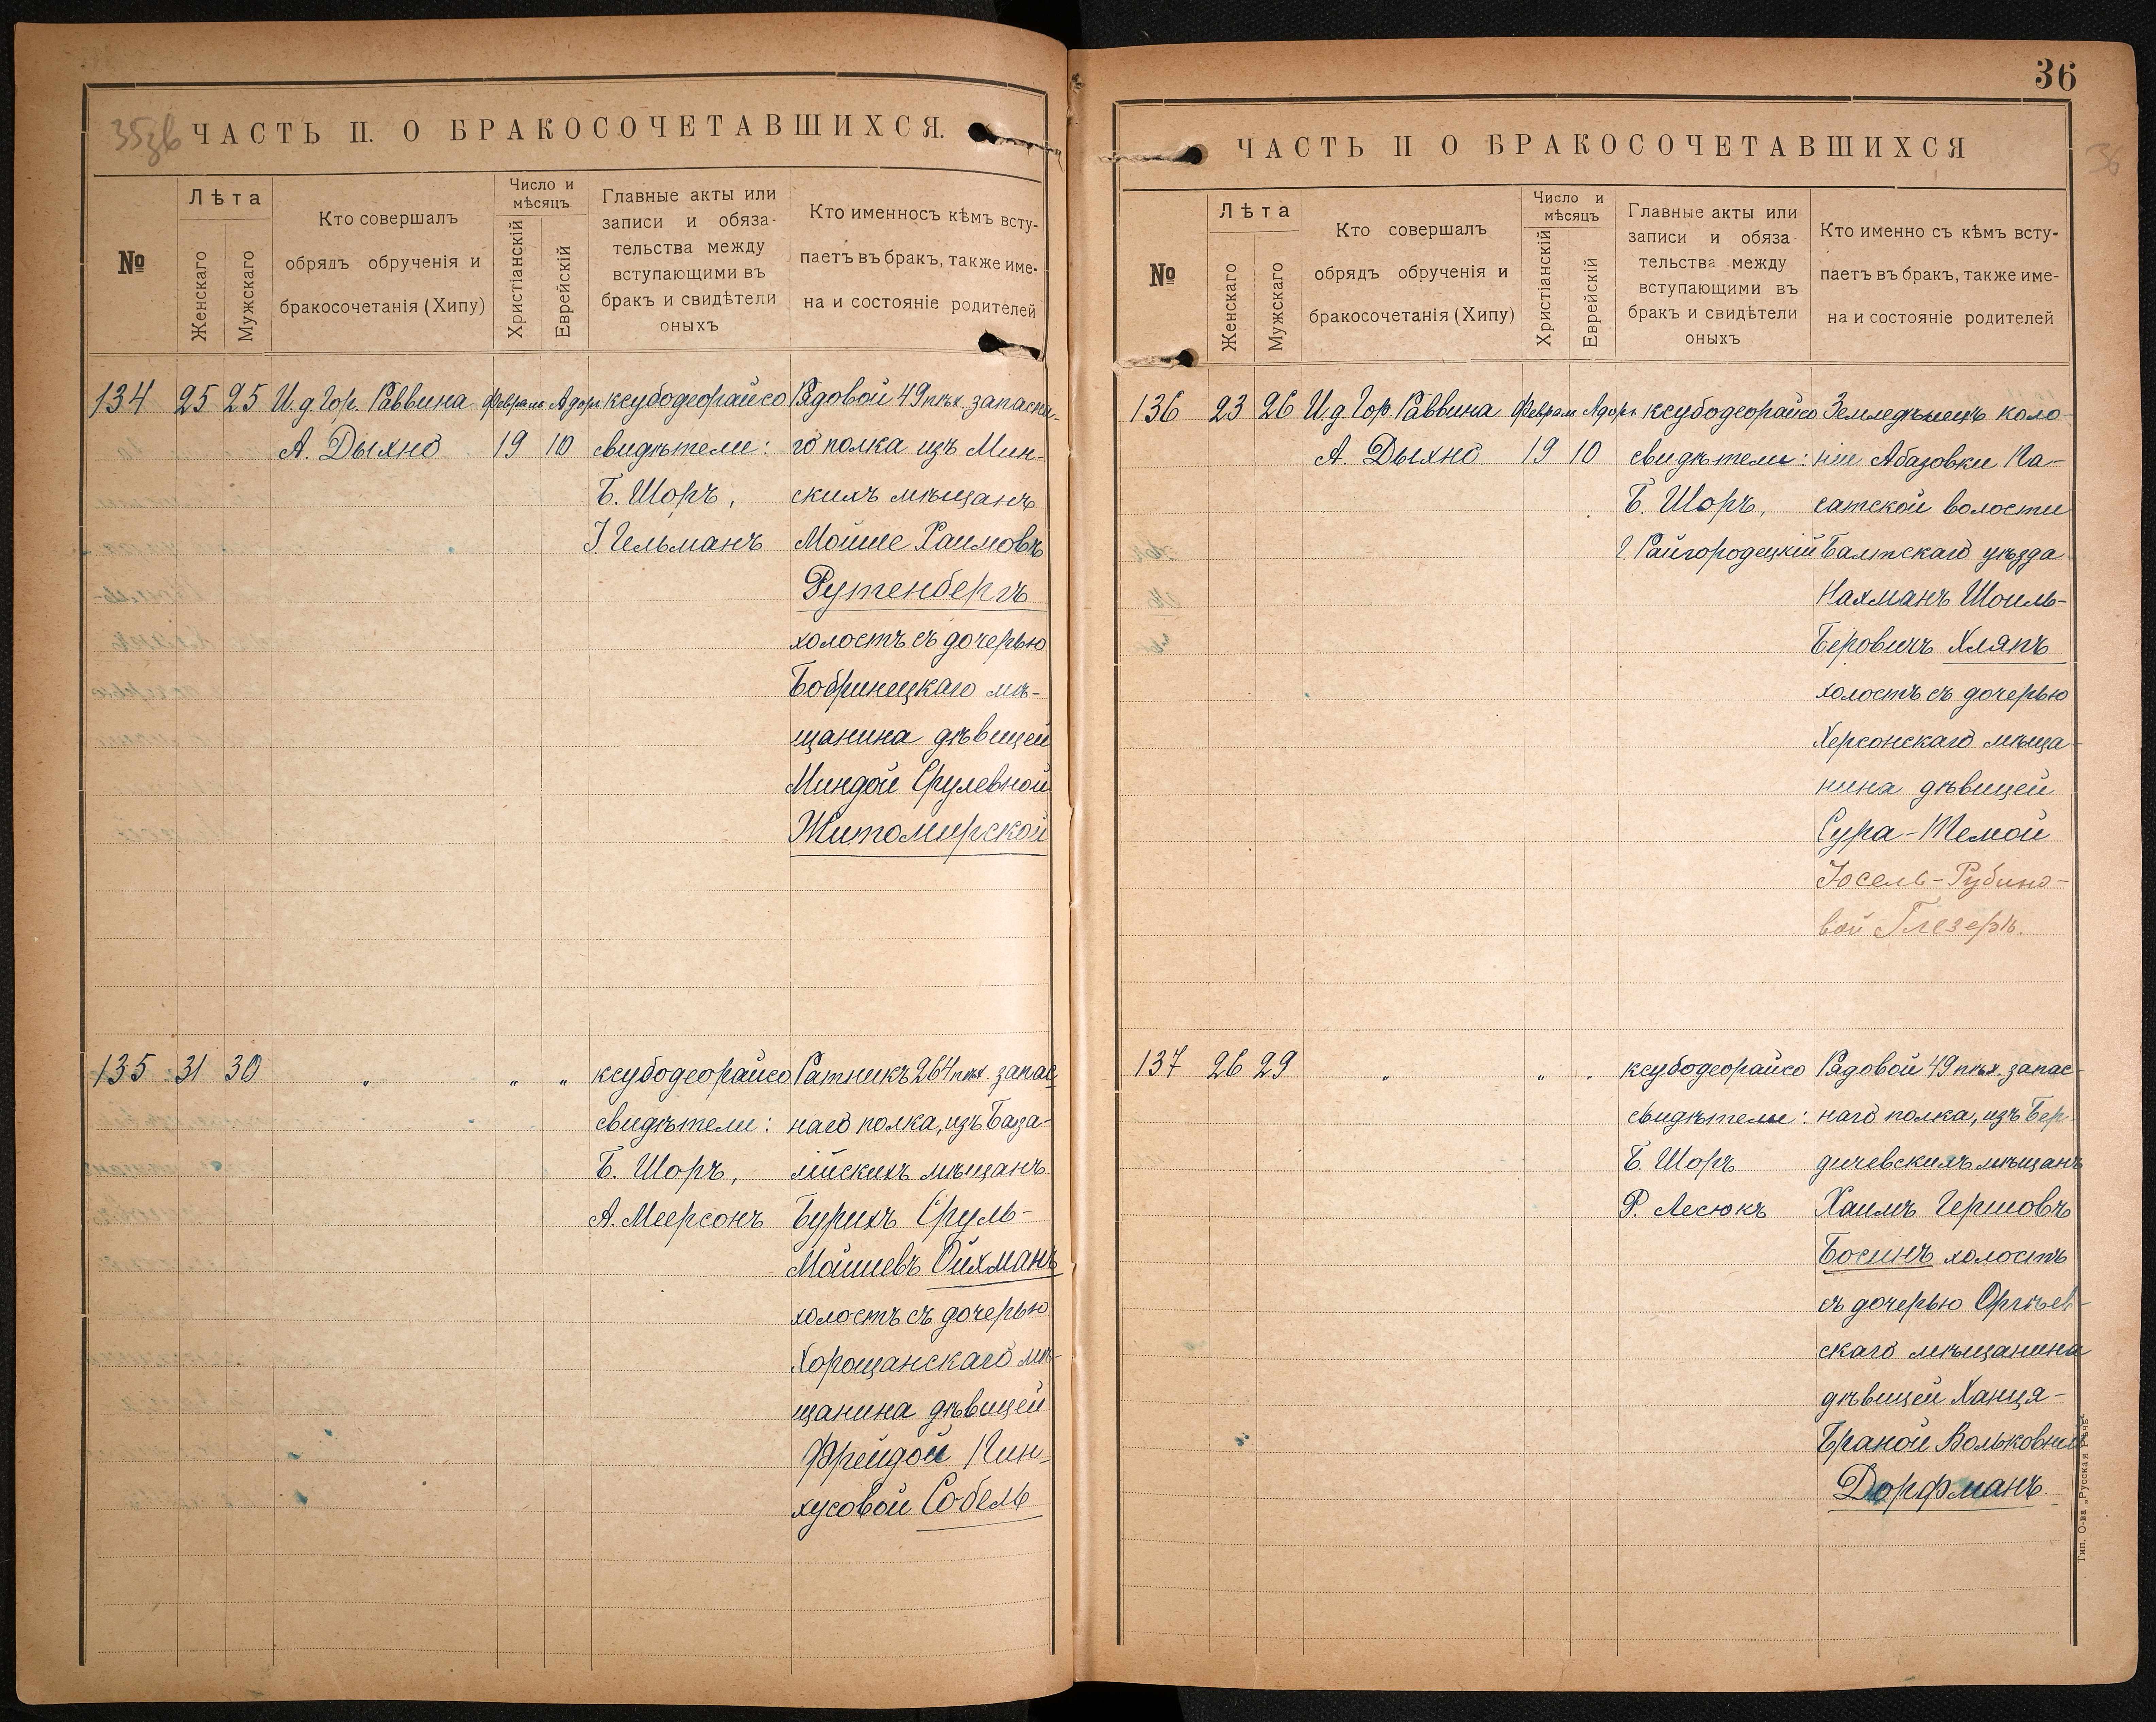 36
35зв
ЧАСТЬ II. О БРАКОСОЧЕТАВШИХСЯ.
№
Лѣта
Женскаго
Мужскаго
Кто совершалъ
обрядъ обрученія и
бракосочетанія (Хипу)
Число и
мѣсяцъ
Христіанскій
Еврейскій
Главные акты или
записи и обяза-
тельства между
вступающими въ
бракъ и свидѣтели
оныхъ
Кто именносъ кѣмъ всту-
паетъ въ бракъ, также име-
на и состояніе родителей
134 25 25 И. д. Гор. Раввина Феврал Адоръ ксубодеорайсо Рядовой 49 пѣх. запасна-
А. Дыхно 19 10 свидѣтели: го полка изъ Мин-
Б. Шоръ, скихъ мѣщанъ
І Гельманъ Мойше Хаимовъ
Рутенбергъ
холостъ съ дочерью
Бобринецкаго мѣ-
щанина дѣвицей
Миндой Срулевной
Житомирской
135 31 30 " " " ксубодеорайсо Ратникъ 264 пѣх. запас
свидѣтели: наго полка, изъ База-
Б. Шоръ, лійскихъ мѣщанъ
А. Меерсонъ Бурихъ Сруль-
Мойшевъ Ойхманъ
холостъ съ дочерью
Хорощанскаго мѣ-
щанина дѣвицей
Фрейдой Пин-
хусовой Собель
ЧАСТЬ II О БРАКОСОЧЕТАВШИХСЯ
36
№
Лѣта
Женскаго
Мужскаго
Кто совершалъ
обрядъ обрученія и
бракосочетанія (Хипу)
Число и
мѣсяцъ
Христіанскій
Еврейскій
Главные акты или
записи и обяза
тельства между
вступающими въ
бракъ и свидѣтели
оныхъ
Кто именно съ кѣмъ всту-
паетъ въ бракъ, также име-
на и состояніе родителей
136 23 26 И д Гор. Раввина Феврал Адоръ ксубодеорайсо Земледѣлецъ коло-
А. Дыхно 19 10 свидѣтели: ніи Абазовки Па-
Б. Шоръ, сатской волости
Г. Райгородецкій Балтскаго уѣзда
Нахманъ Шоиль-
Беровичъ Хляпъ
холостъ съ дочерью
Херсонскаго мѣща-
нина дѣвицей
Сура-Темой
Іосель-Рубино-
вой Глезеръ.
137 26 29 " " " ксубодеорайсо Рядовой 49 пѣх. запас-
свидѣтели: наго полка, изъ Бер-
Б. Шоръ дичевскихъ мѣщанъ
Р. Лесюкъ Хаимъ Гершовъ
Босинъ холостъ
съ дочерью Оргѣев-
скаго мѣщанина
дѣвицей Ханця-
Браной Вольковной
Дорфманъ.
Тип. О-ва „Русская Рѣчь"